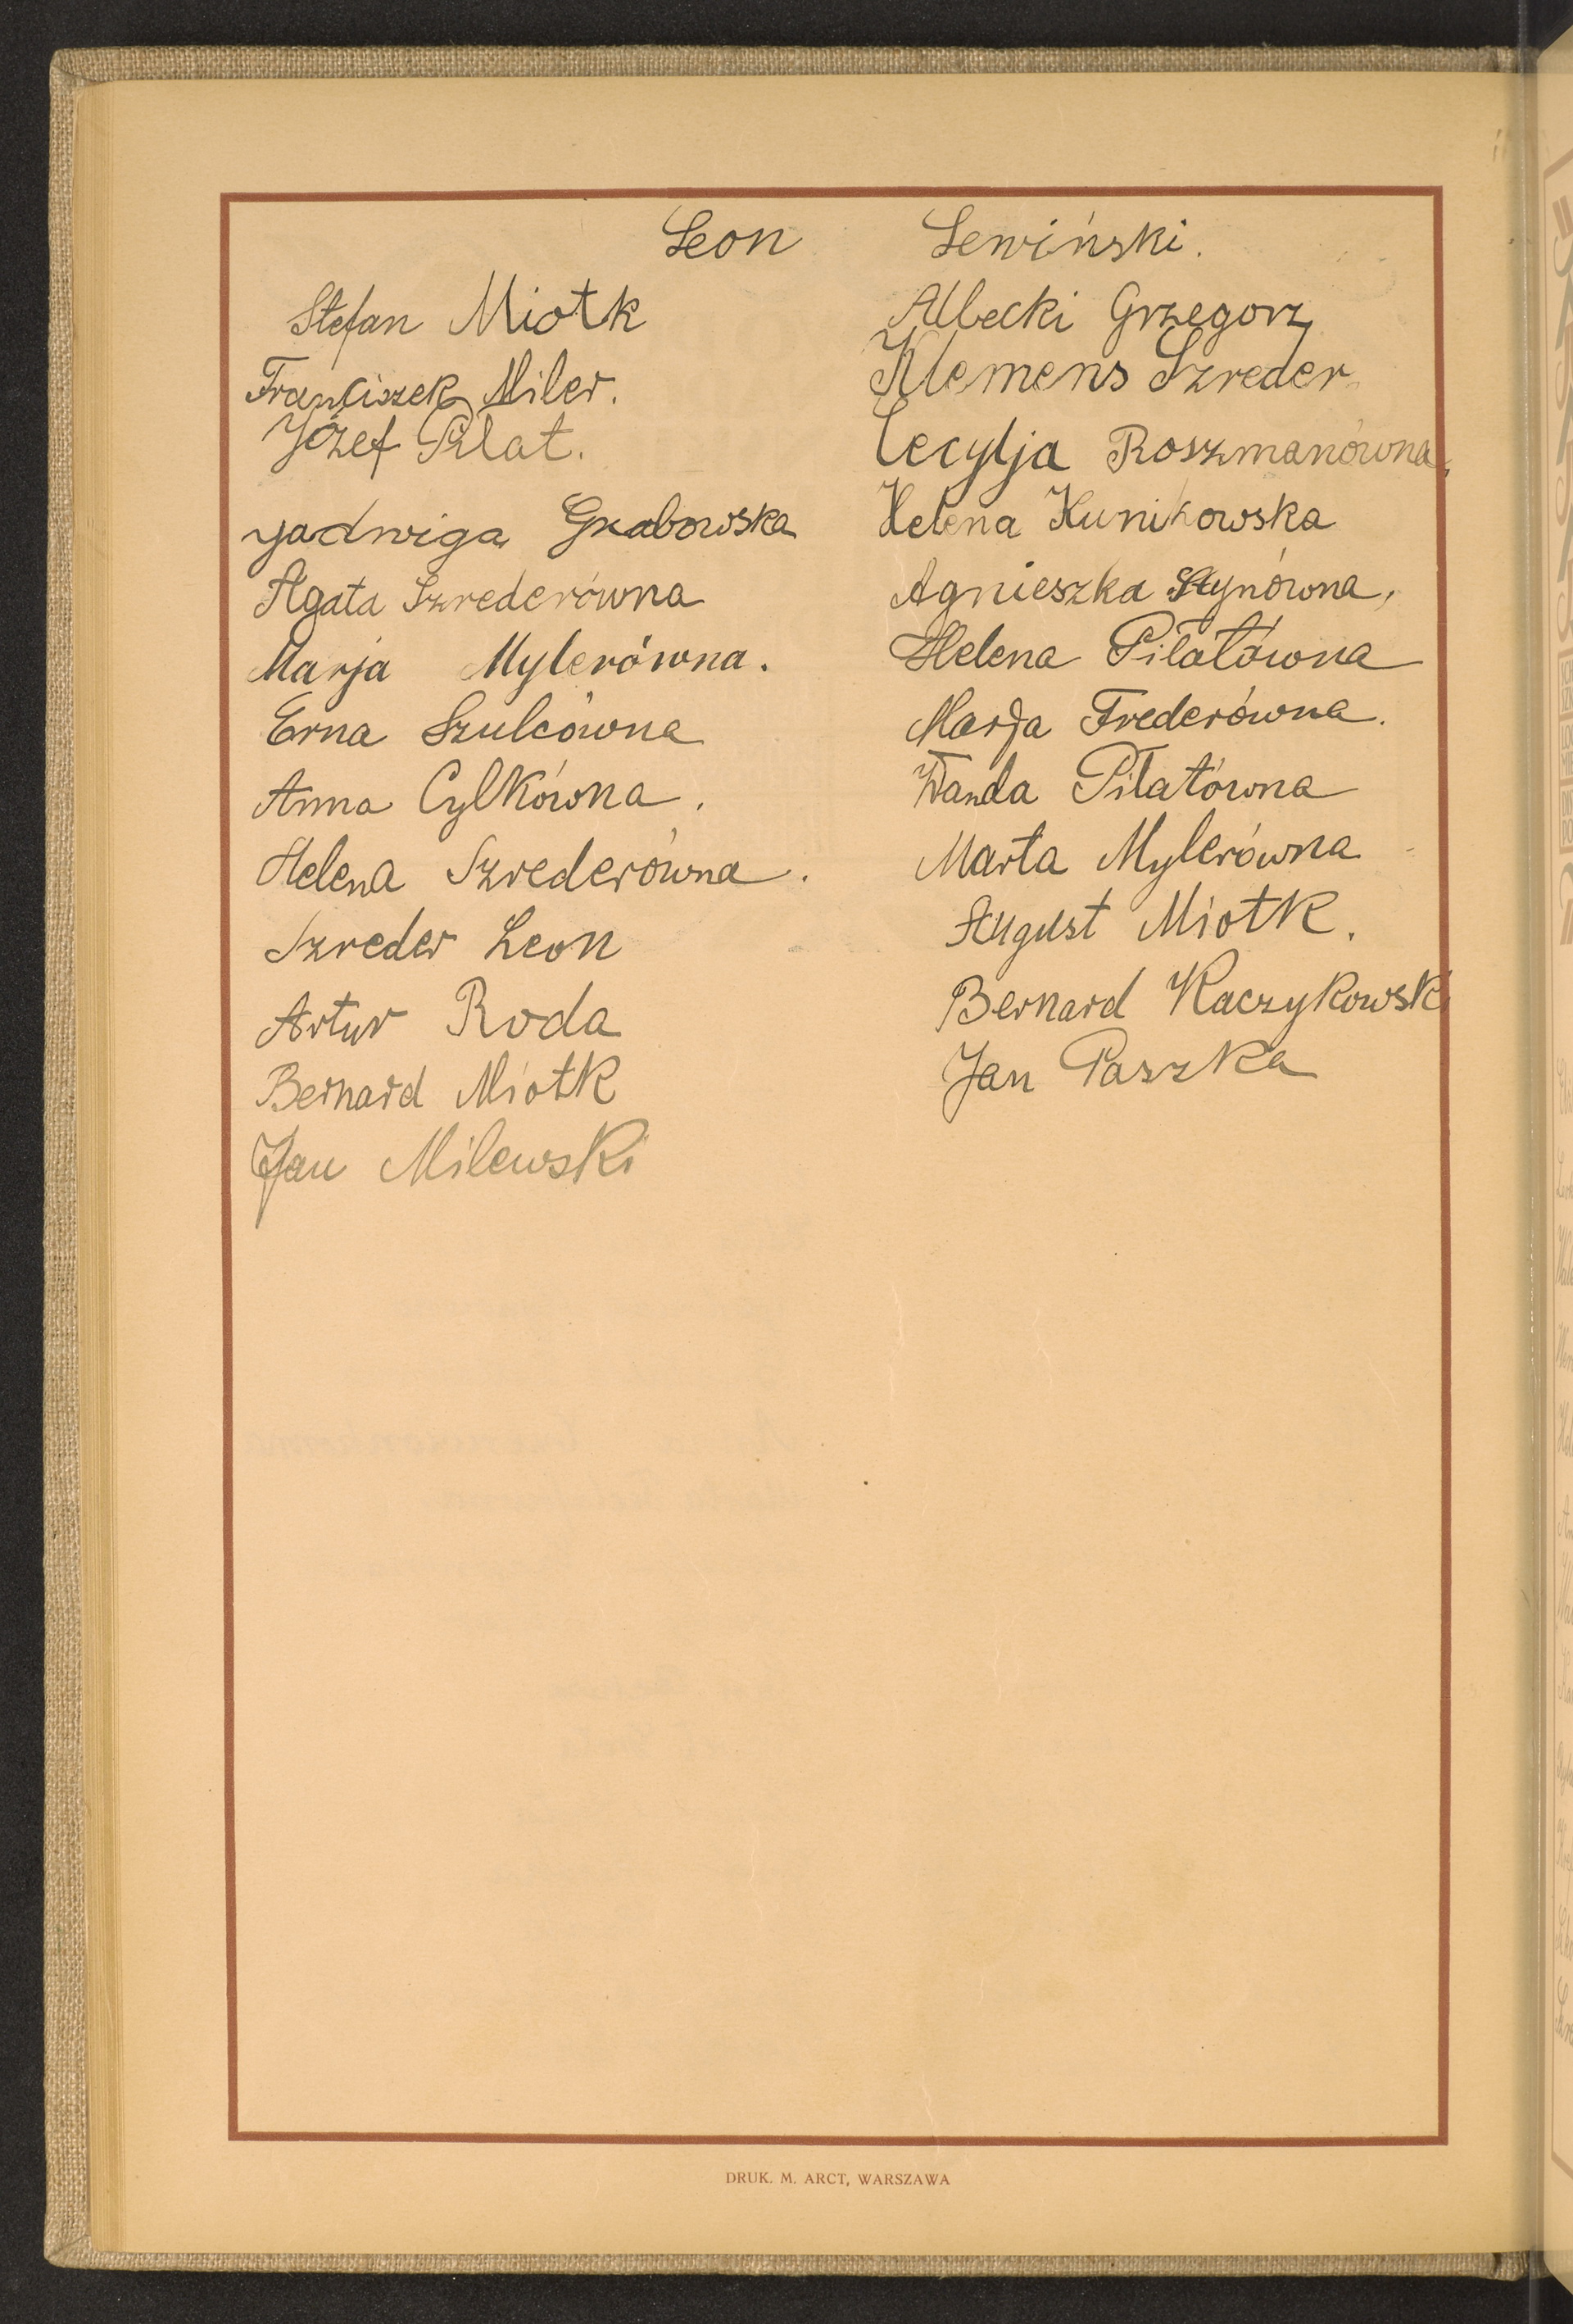 Leon Lewiński.
Stefan Miotk
Franciszek Miler.
Józef Pilat.
Jadwiga Grabowska
Agata Szrederówna
Marja Mylerówna.
Erna Szulcówna
Anna Cylkówna.
Helena Szrederówna.
Szreder Leon
Artur Roda
Bernard Miotk
Jan Milewski
Albecki Grzegorz
Klemens Szreder
Cecylja Roszmanówna,
Helena Kunikowska
Agnieszka Stynówna,
Helena Pilatówna
Marja Frederówna.
Wanda Pilatówna
Marta Mylerówna
August Miotk.
Bernard Kaczykowski
Jan Paszka
DRUK. M. ARCT, WARSZAWA